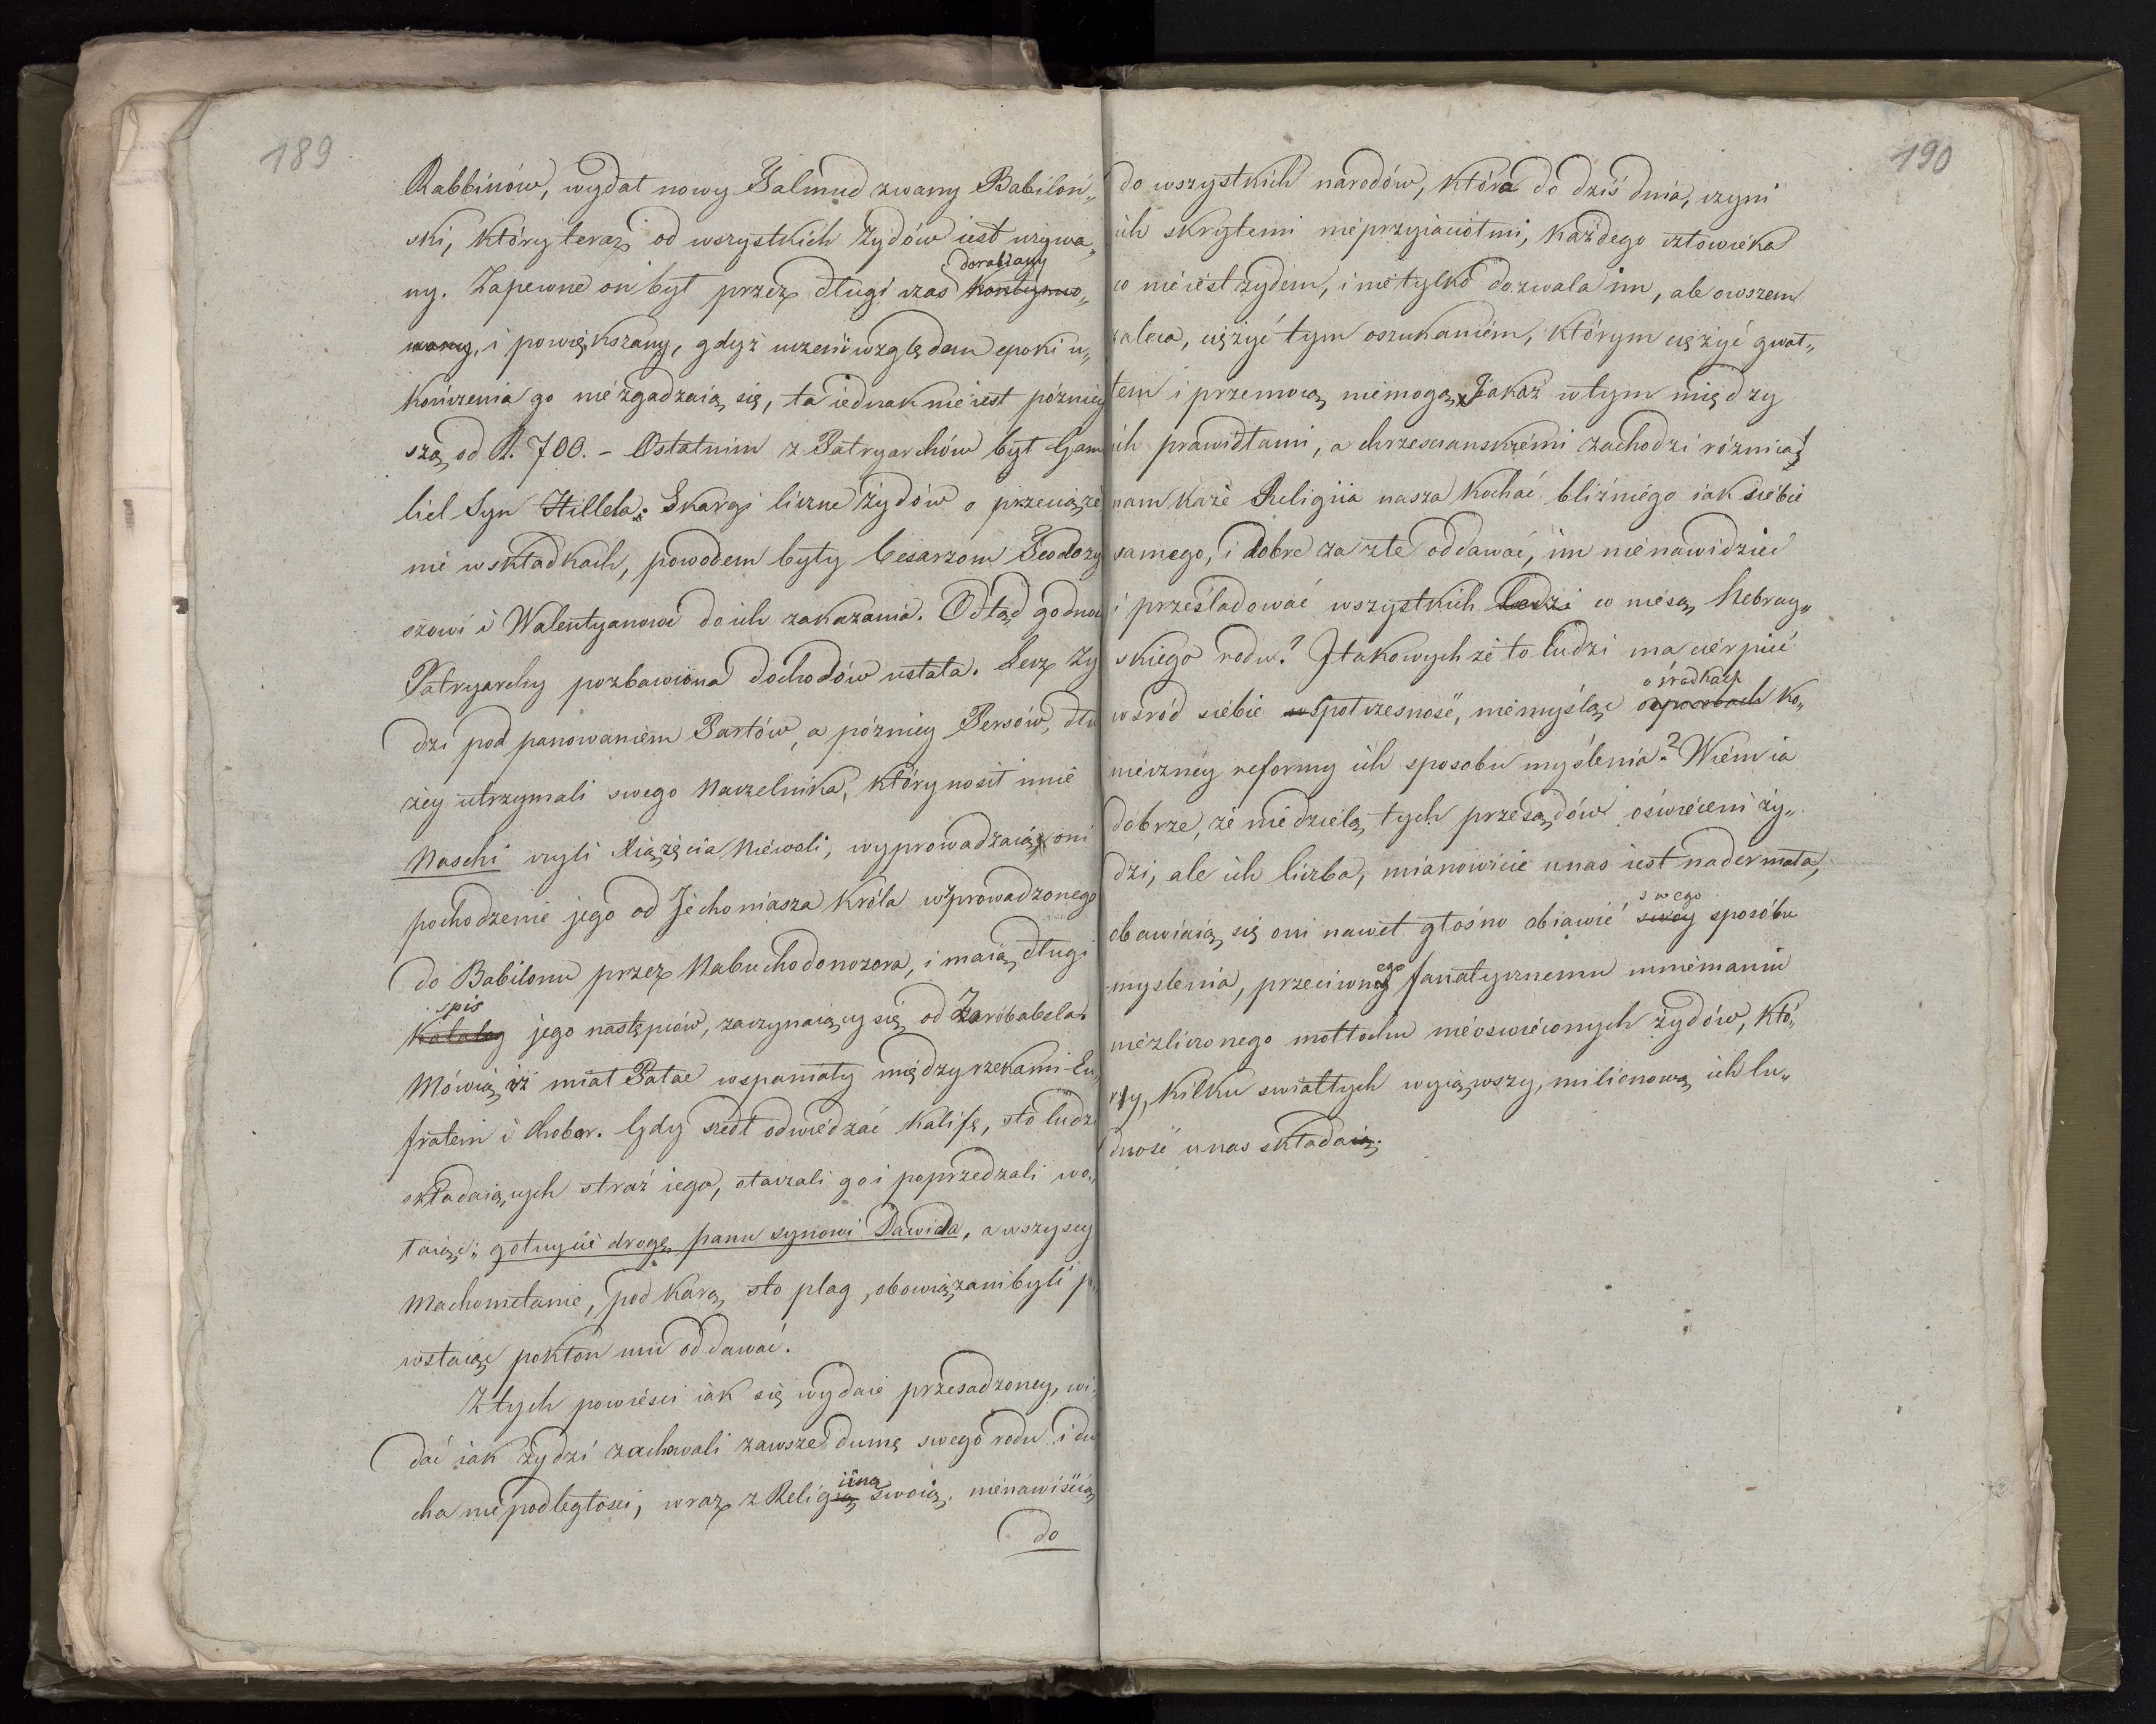 189
Rabbinów, wydał nowy Talmud zwany Babiloń„
ski, który teraz od wszystkich Żydów iest używa„
dorabiany
ny. Zapewne on był przez długi czas kontynuo„
wany, i powiększany, gdyż uczeni względem epoki u„
kończenia go nie zgadzaią się, ta iednak nie iest późniey
szą od R. 700. – Ostatnim z Patryarchów był Gam
liel Syn Hillela. Skargi liczne Żydów o przeciąże
nie w składkach, powodem były Cesarzom Teodozy
szowi i Walentyanowi do ich zakazania. Odtąd godnoś
Patryarchy pozbawiona dochodów ustała. Lecz Ży
dzi pod panowaniem Partów, a późniey Persów, dłu
żey utrzymali swego Naczelnika, który nosił imie
Naschi czyli Xiążęcia Niewoli, wyprowadzaią oni
pochodzenie jego od Jechoniasza Króla uprowadzonego
do Babilonu przez Nabuchodonozora, i maią długi
spis
Katalog jego następców, zaczynaiący się od Zorobabela.
Mówią iż miał Pałac wspaniały między rzekami Eu„
fratem i Chobar. Gdy szedł odwiedzać Kalifę, sto ludzi
składaiących straż iego, otaczali go i poprzedzali wo„
łaiąc: gotuycie drogę panu synowi Dawida, a wszyscy
Machometanie, pod karą sto plag, obowiązani byli po„
wstaiąc pokłon mu oddawać.
Z tych powieści iak się wydaie przesadzoney, wi„
dać iak żydzi zachowali zawsze dumę swego rodu i du
cha niepodległości, wraz z Religią
iiną
swoią, nienawiścią
do
190
do wszystkich narodów, która do dziś dnia, czyni
ich skrytemi nieprzyiaciółmi, każdego człowieka
co nie iest żydem, i nie tylko dozwala im, ale owszem
zaleca, ciężyć tym oszukaniem, którym ciężyć gwał„
tem i przemocą niemogą. Jakaż w tym między
ich prawidłami, a chrzescianskiemi zachodzi różnica!
nam każe Religiia nasza kochać bliźniego iak siebie
samego, i dobre za złe oddawać, im nienawidzieć
i prześladować wszystkich ludzi co niesą Hebray„
skiego rodu? I takowychże to ludzi ma cierpieć
o środkach
wsród siebie wspołczesność, niemyśląc o sposobach ko„
nieczney reformy ich sposobu myślenia? Wiem ia
dobrze, że nie dzielą tych przesądów oświeceni ży„
dzi, ale ich liczba, mianowicie u nas iest nader mała,
swego
obawiaią się oni nawet głośno obiawić swoy sposóbu
ego
myslenia, przeciwny fanatycznemu mniemaniu
niezliczonego mottochu nieoswieconych żydów, któ„
rzy, kilku swiatłych wyiąwszy, milionową ich lu„
dność u nas składaią.